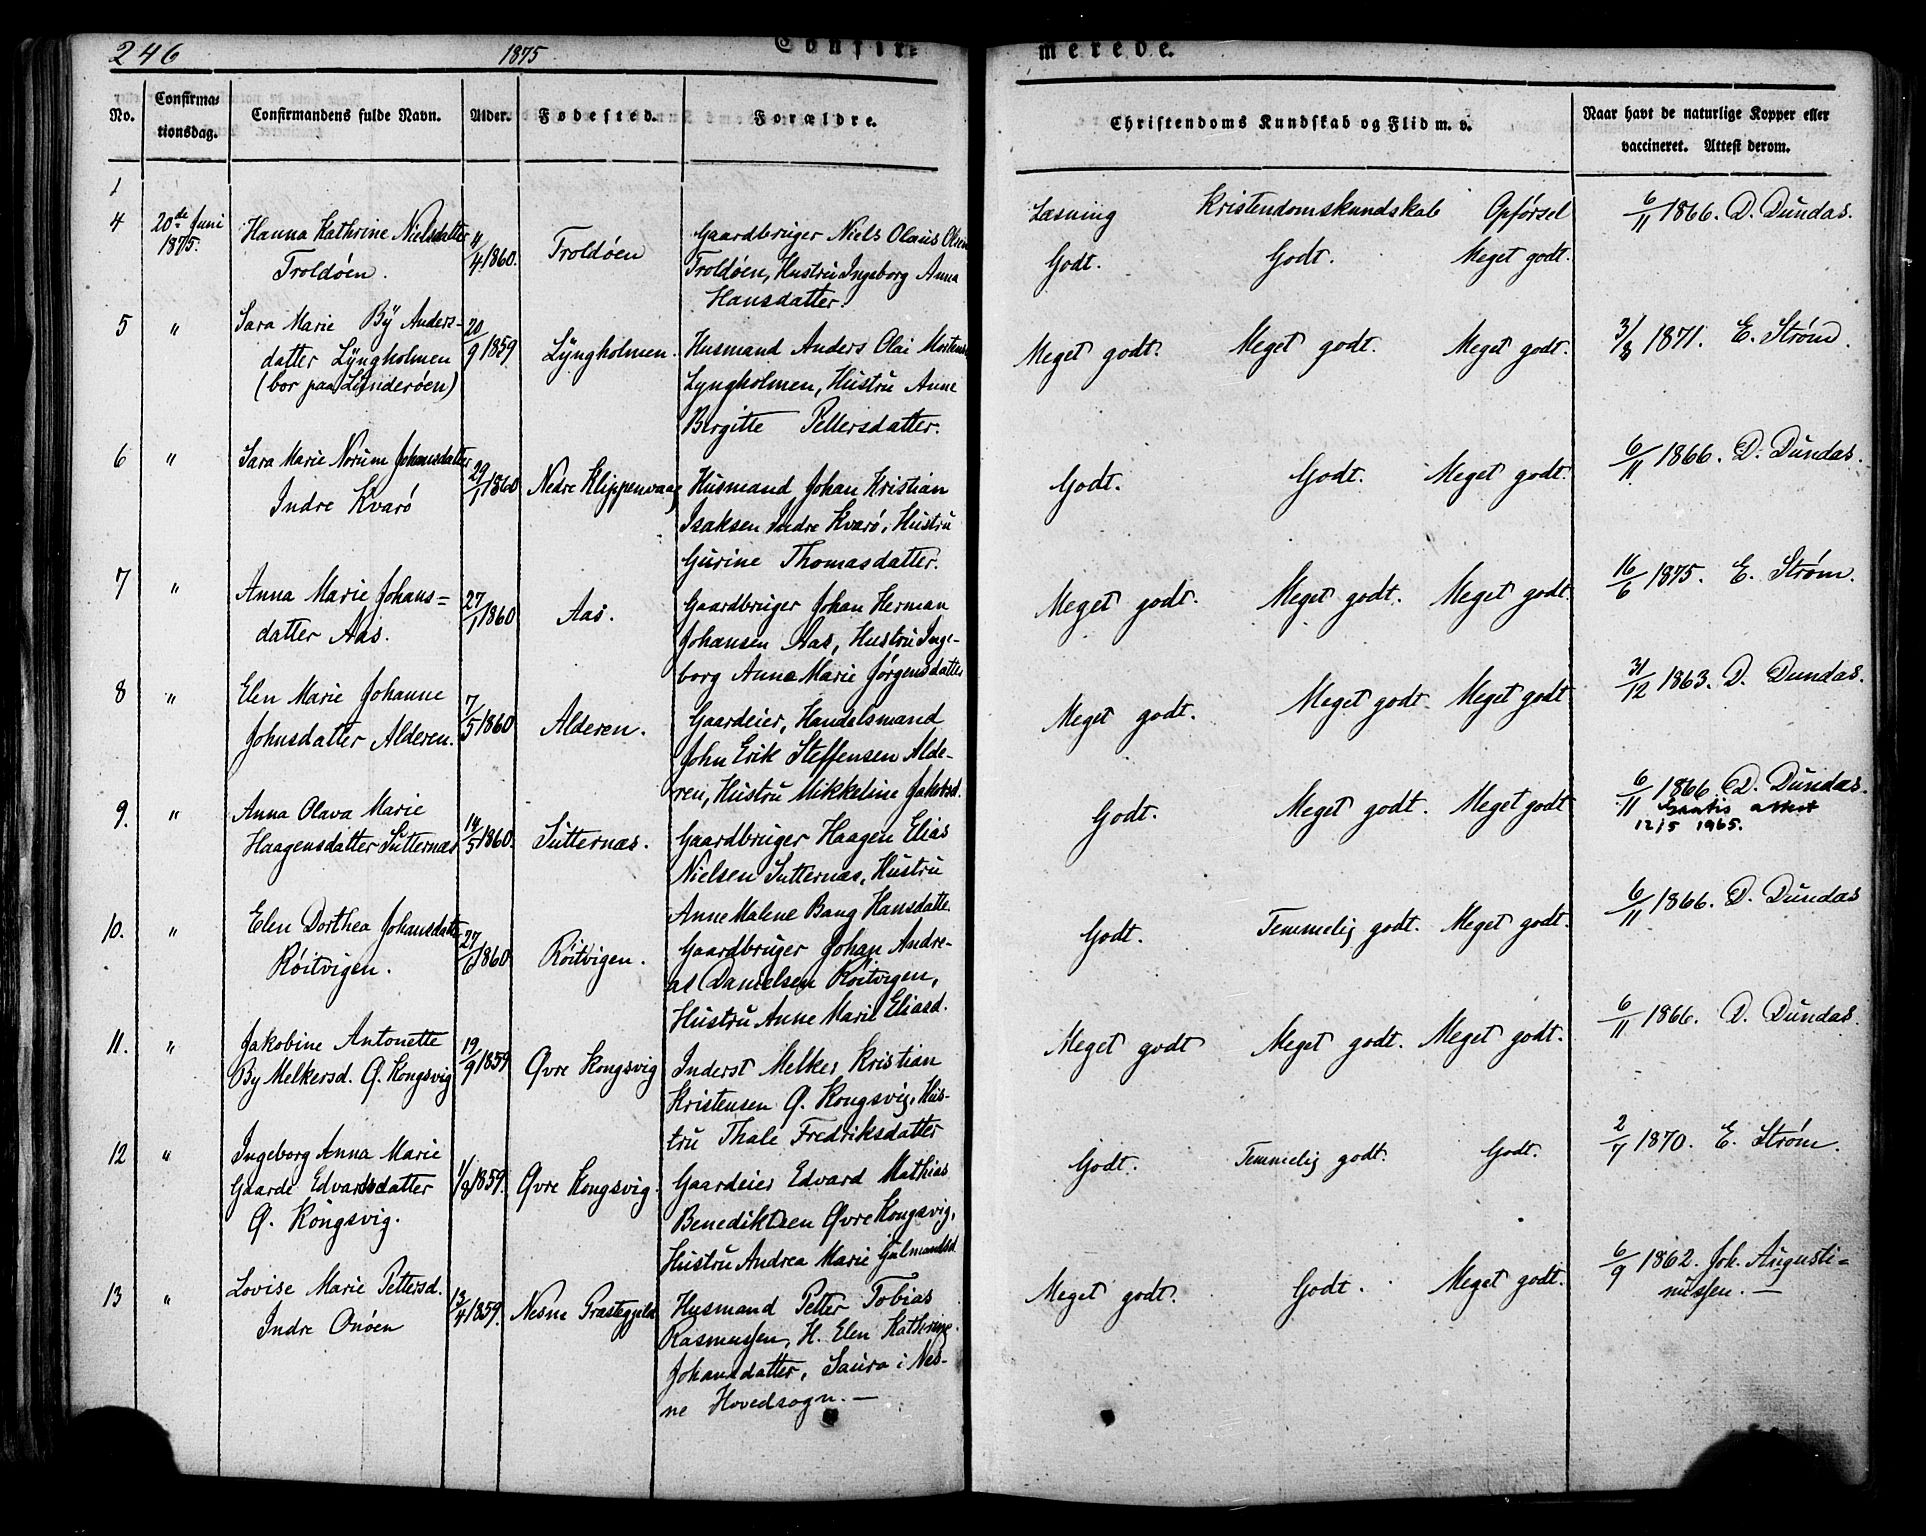 246 1875 Confir= merede.
No. Confirma= tionsdag. Confirmandens fulde Navn. Alder. Fødested. Forældre. Christendoms Kundskab og Flid m. v. Naar havt de naturlige Kopper eller vaccineret. Attest derom.
1
Læsning Kristendomskundskab Opførsel
4 20de Juni 1875. Hanna Kathrine Nielsdatter 11/4 1860. Troldøen Gaardbruger Niels Olaus Olsen 6/11 1866. D. Dundas.
Troldøen. Troldøen, Hustru Ingeborg Anna Godt. Godt. Meget godt.
Hansdatter.
5 " Sara Marie Bÿ Anders- 20/9 1859 Lÿngholmen. Husmand Anders Olai Mortens. Meget godt. Meget godt. Meget godt. 31/8 1871. E. Strøm.
datter Lÿngholmen Lyngholmen, Hustru Anne
(bor paa Lunderøen) Birgitte Pettersdatter.
6 " Sara Marie Norum Johansdatter 29/1 1860 Nedre Klippenvaag Husmand Johan Kristian Godt. Godt. Meget godt. 6/11 1866. D. Dundas.
Indre Kvarø Isaksen Indre Kvarø, Hustru
Gurine Thomasdatter.
7 " Anna Marie Johans= 27/1 1860 Aas. Gaardbruger Johan Herman Meget godt. Meget godt. Meget godt 16/6 1875. E. Strøm.
datter Aas. Johansen Aas, Hustru Inge-
borg Anna Marie Jørgensdatter
8 " Elen Marie Johanne 7/5 1860 Alderen. Gaardeier, Handelsmand Meget godt. Meget godt. Meget godt 31/12 1863. D. Dundas.
Johnsdatter Alderen. John Erik Steffensen Alde-
ren, Hustru Mikkeline Jakobsd.
9. " Anna Olava Marie 14/5 1860. Sutternæs. Gaardbruger Haagen Elias Godt. Meget godt. Meget godt 6/11 1866. D. Dundas.
Haagensdatter Sutternæs Nielsen Sutternæs, Hustru Gratis attest
Anne Malene Bang Hansdatter. 12/5 1965.
10. " Elen Dorthea Johansdatter 27/6 1860 Røitvigen. Gaardbruger Johan Andre- Godt. Temmelig godt. Meget godt. 6/11 1866. D. Dundas
Røitvigen. as Danielsen Røitvigen,
Hustru Anne Marie Eliasd.
11. " Jakobine Antonette 19/9 1859 Øvre Kongsvig Inderst Melker Kristian Meget godt Meget godt. Meget godt. 6/11 1866. D. Dundas.
By Melkersd. Ø. Kongsvig Kristensen Ø. Kongsvig, Hus-
tru Thale Fredriksdatter
12 " Ingeborg Anna Marie 1/8 1859. Øvre Kongsvig. Gaardeier Edvard Mathias Godt. Temmelig godt. Godt. 2/7 1870. E. Strøm.
Gaarde Edvardsdatter Benediktsen Øvre Kongsvig,
Ø. Kongsvig. Hustru Andrea Marie Gulmandsd.
13 " Lovise Marie Pettersd. 13/4 1859. Nesne Præstegjeld Husmand Petter Tobias Meget godt. Godt. Meget godt. 6/9 1862. Joh. Augusti=
Indre Onøen Rasmussen, H. Elen Kathrine nussen. —
Johansdatter, Saura i Nes-
ne Hovedsogn. —